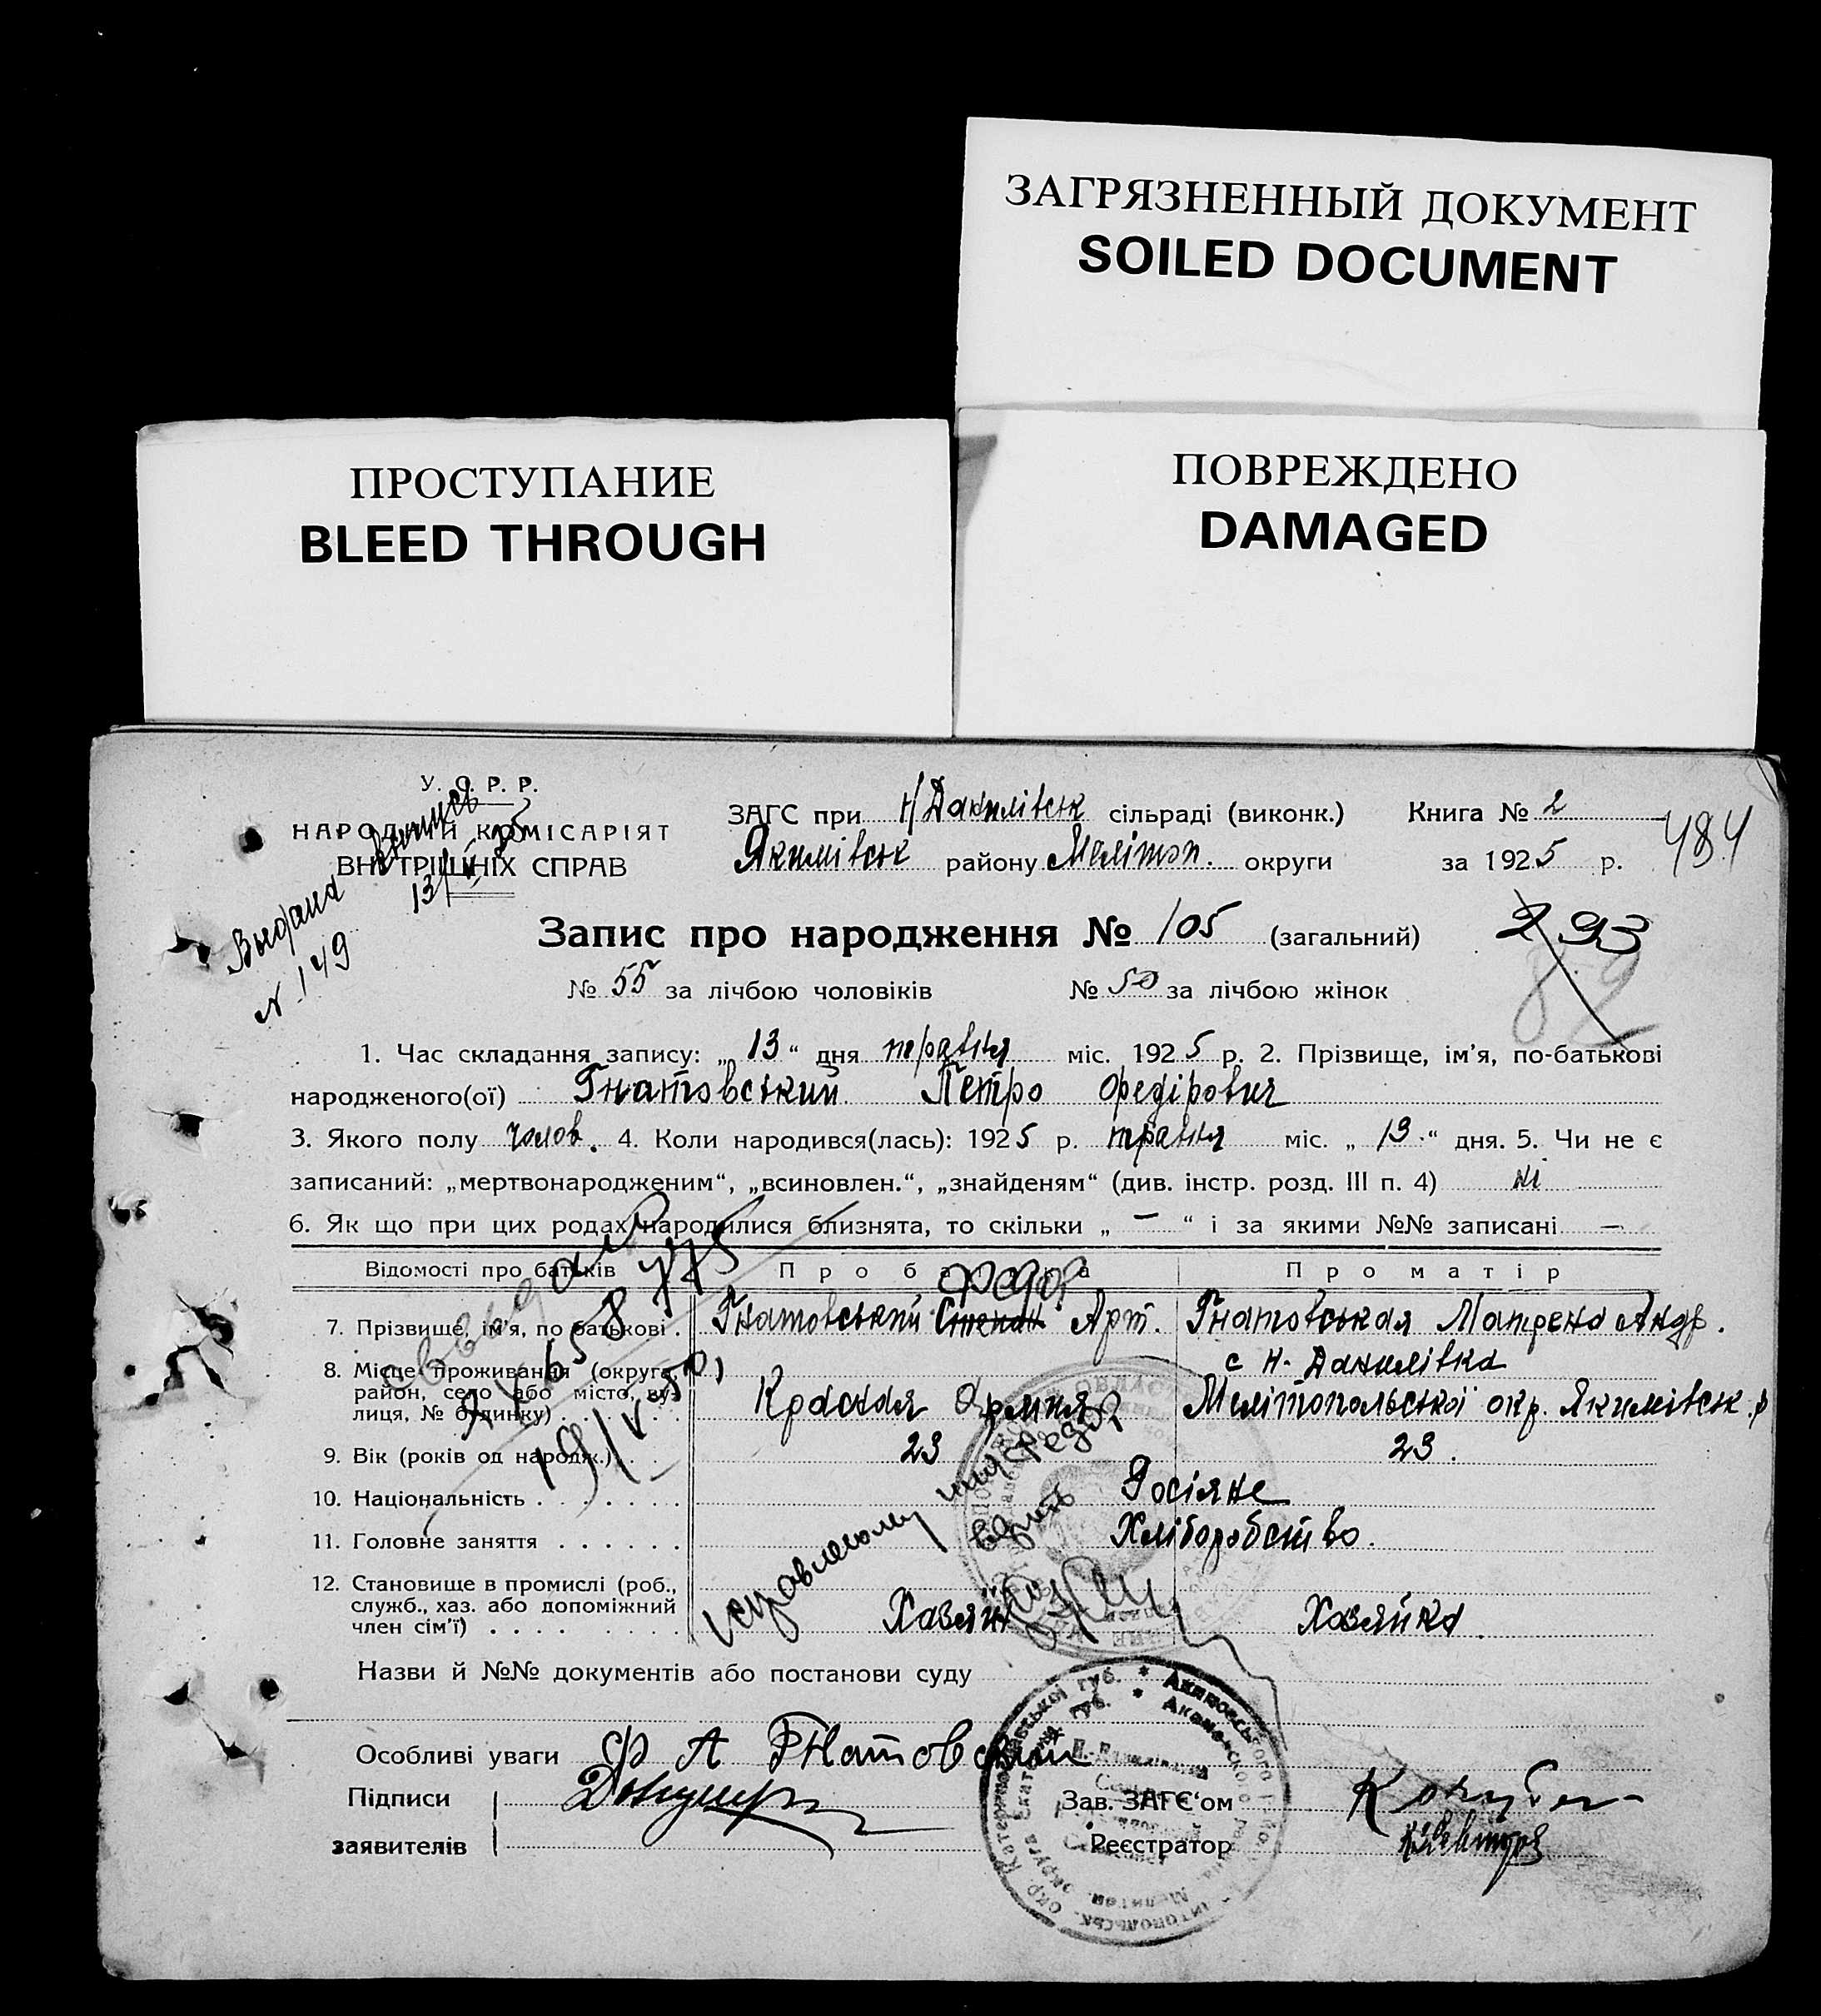 ЗАГРЯЗНЕННЫЙ ДОКУМЕНТ
SOILED DOCUMENT
ПРОСТУПАНИЕ
BLEED THROUGH
ПОВРЕЖДЕНО
DAMAGED
У. С. Р. Р.
НАРОДНІЙ КОМІСАРІЯТ
ВНУТРІШНІХ СПРАВ
Выдана
13/
№ 149
ЗАГС при Н/Данилівськ сільраді (виконк.) Книга № 2
Якимівськ району Мелітоп. округи за 1925 р.
484
Запис про народження № 105 (загальний)
293
82
№ 55 за лічбою чоловіків № 50 за лічбою жінок
1. Час складання запису: „ 13 “ дня травня міс. 1925 р. 2. Прізвище, ім’я, по-батькові
народженого(ої) Гнатовський Петро Федірович
3. Якого полу чолов. 4. Коли народився(лась): 1925 р. травня міс. „ 13 “ дня. 5. Чи не є
записаний: „мертвонародженим“, „всиновлен.“, „знайденям“ (див. інстр. розд. III п. 4) ні
6. Як що при цих родах народилися близнята, то скільки „ — “ і за якими №№ записані —
Відомості про батьків Про батька Про матір
7. Прізвище, ім’я, по батькові . Гнатовський Степан Арт. Гнатовская Матрена Андр.
с Н. Данилівка
8. Місце проживання (округа, район, село або місто, вулиця, № будинку) Красная Армия Мелітопольської окр. Якимівськ. р
9. Вік (років од народж.) 23 23.
10. Національність Росіяне
11. Головне заняття Хліборобство.
12. Становище в промислі (роб., служб., хаз. або допоміжний член сім’ї) Хазяїн Хазяйка.
Исправленому
верить
Назви й №№ документів або постанови суду
Особливі уваги Ф А Гнатовский
Підписи
заявителів
Зав. ЗАГС‘ом
Реєстратор